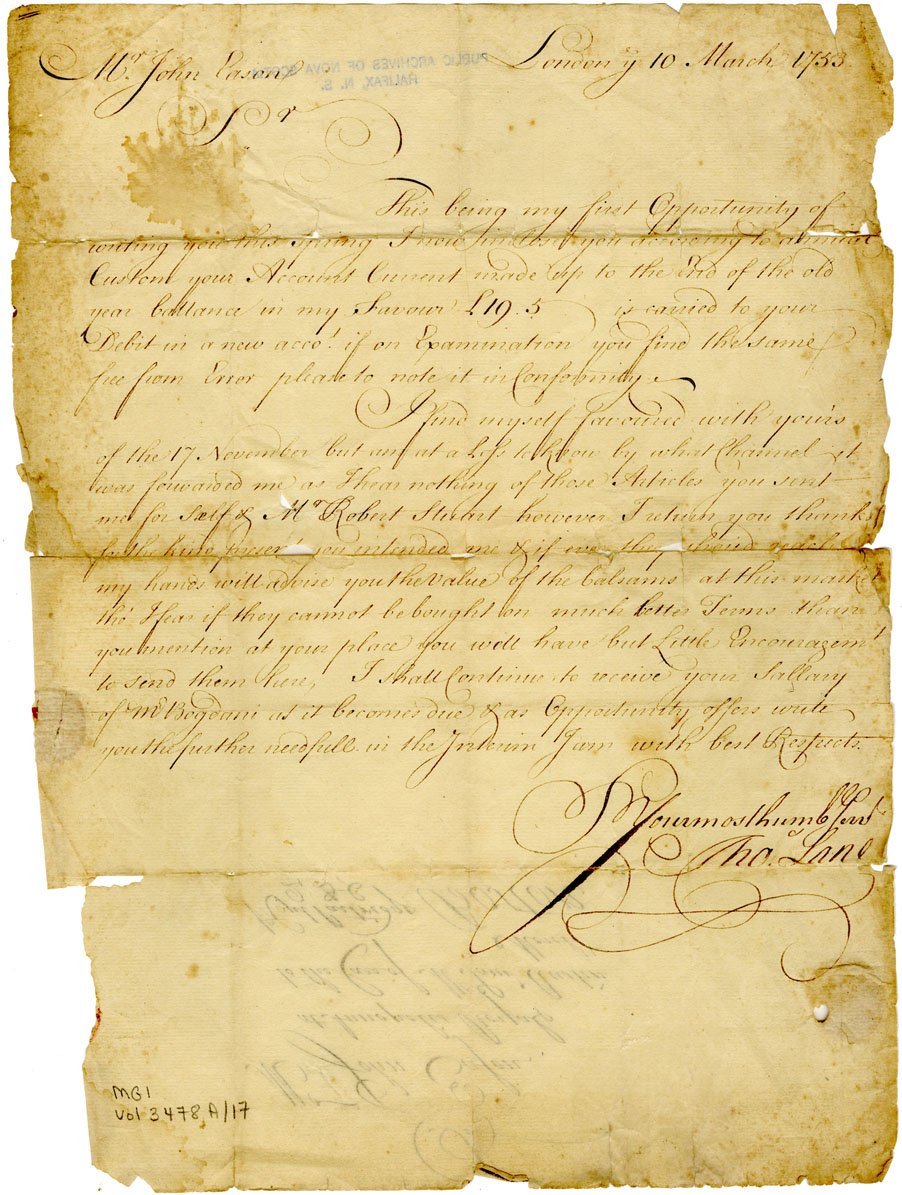 Mr John Eason London ye 10 March 1753
PUBLIC ARCHIVES OF NOVA SCOTIA
HALIFAX, N. S.
Sr
This being my first Opportunity of
writing you this Spring I now inclose you according to annual
Custom your Account Current made up to the End of the old
year ballance in my Favour £19.5 is carried to your
Debit in a new accot. if on Examination you find the same
free from Error please to note it in Conformity.
I find myself favoured with your's
of the 17 November but am at a Loss to know by what Channel it
was forwarded me as I hear nothing of those Articles you sent
me for Self & Mr Robert Stuart however I return you thanks
for the kind present you intended me & if ever they should reach
my hands will advise you the Value of the Balsams at this market
tho' I fear if they cannot be bought on much better Terms than
you mention at your place you will have but Little Encouragemt
to send them here, I shall Continue to receive your Sallary
of Mr Bogdani as it becomes due & as Opportunity offers write
you the further needfull in the Interim I am with best Respects
Your most humble Servt
Tho. Lane
Boston
to the Care of
at Annapolis Royal
Mr John Eason
MG1
Vol 3478 A/17